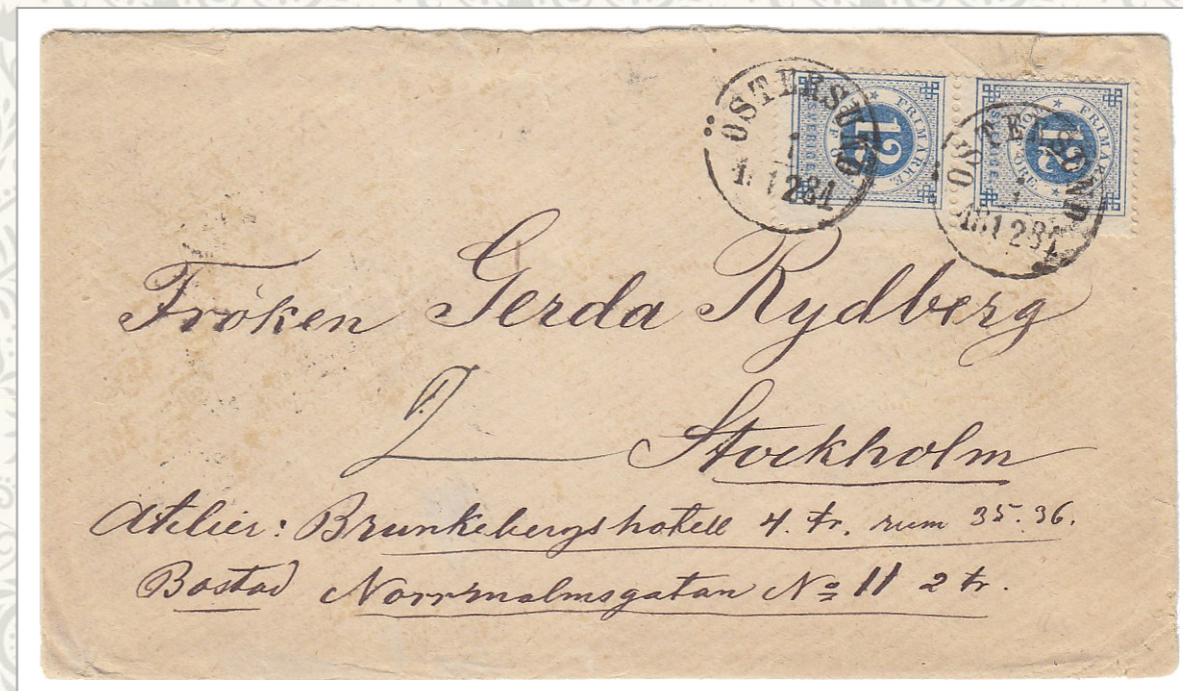 ÖSTERSUND
1
1281
FRIMÄRKE
12
ÖSTERSUND
1
1281
FRIMÄRKE
12
ÖRE
Fröken Gerda Rydberg
Stockholm
Atelier: Brunkebergshotell 4. tr. rum 35. 36.
Bostad Norrmalmsgatan No 11 2 tr.